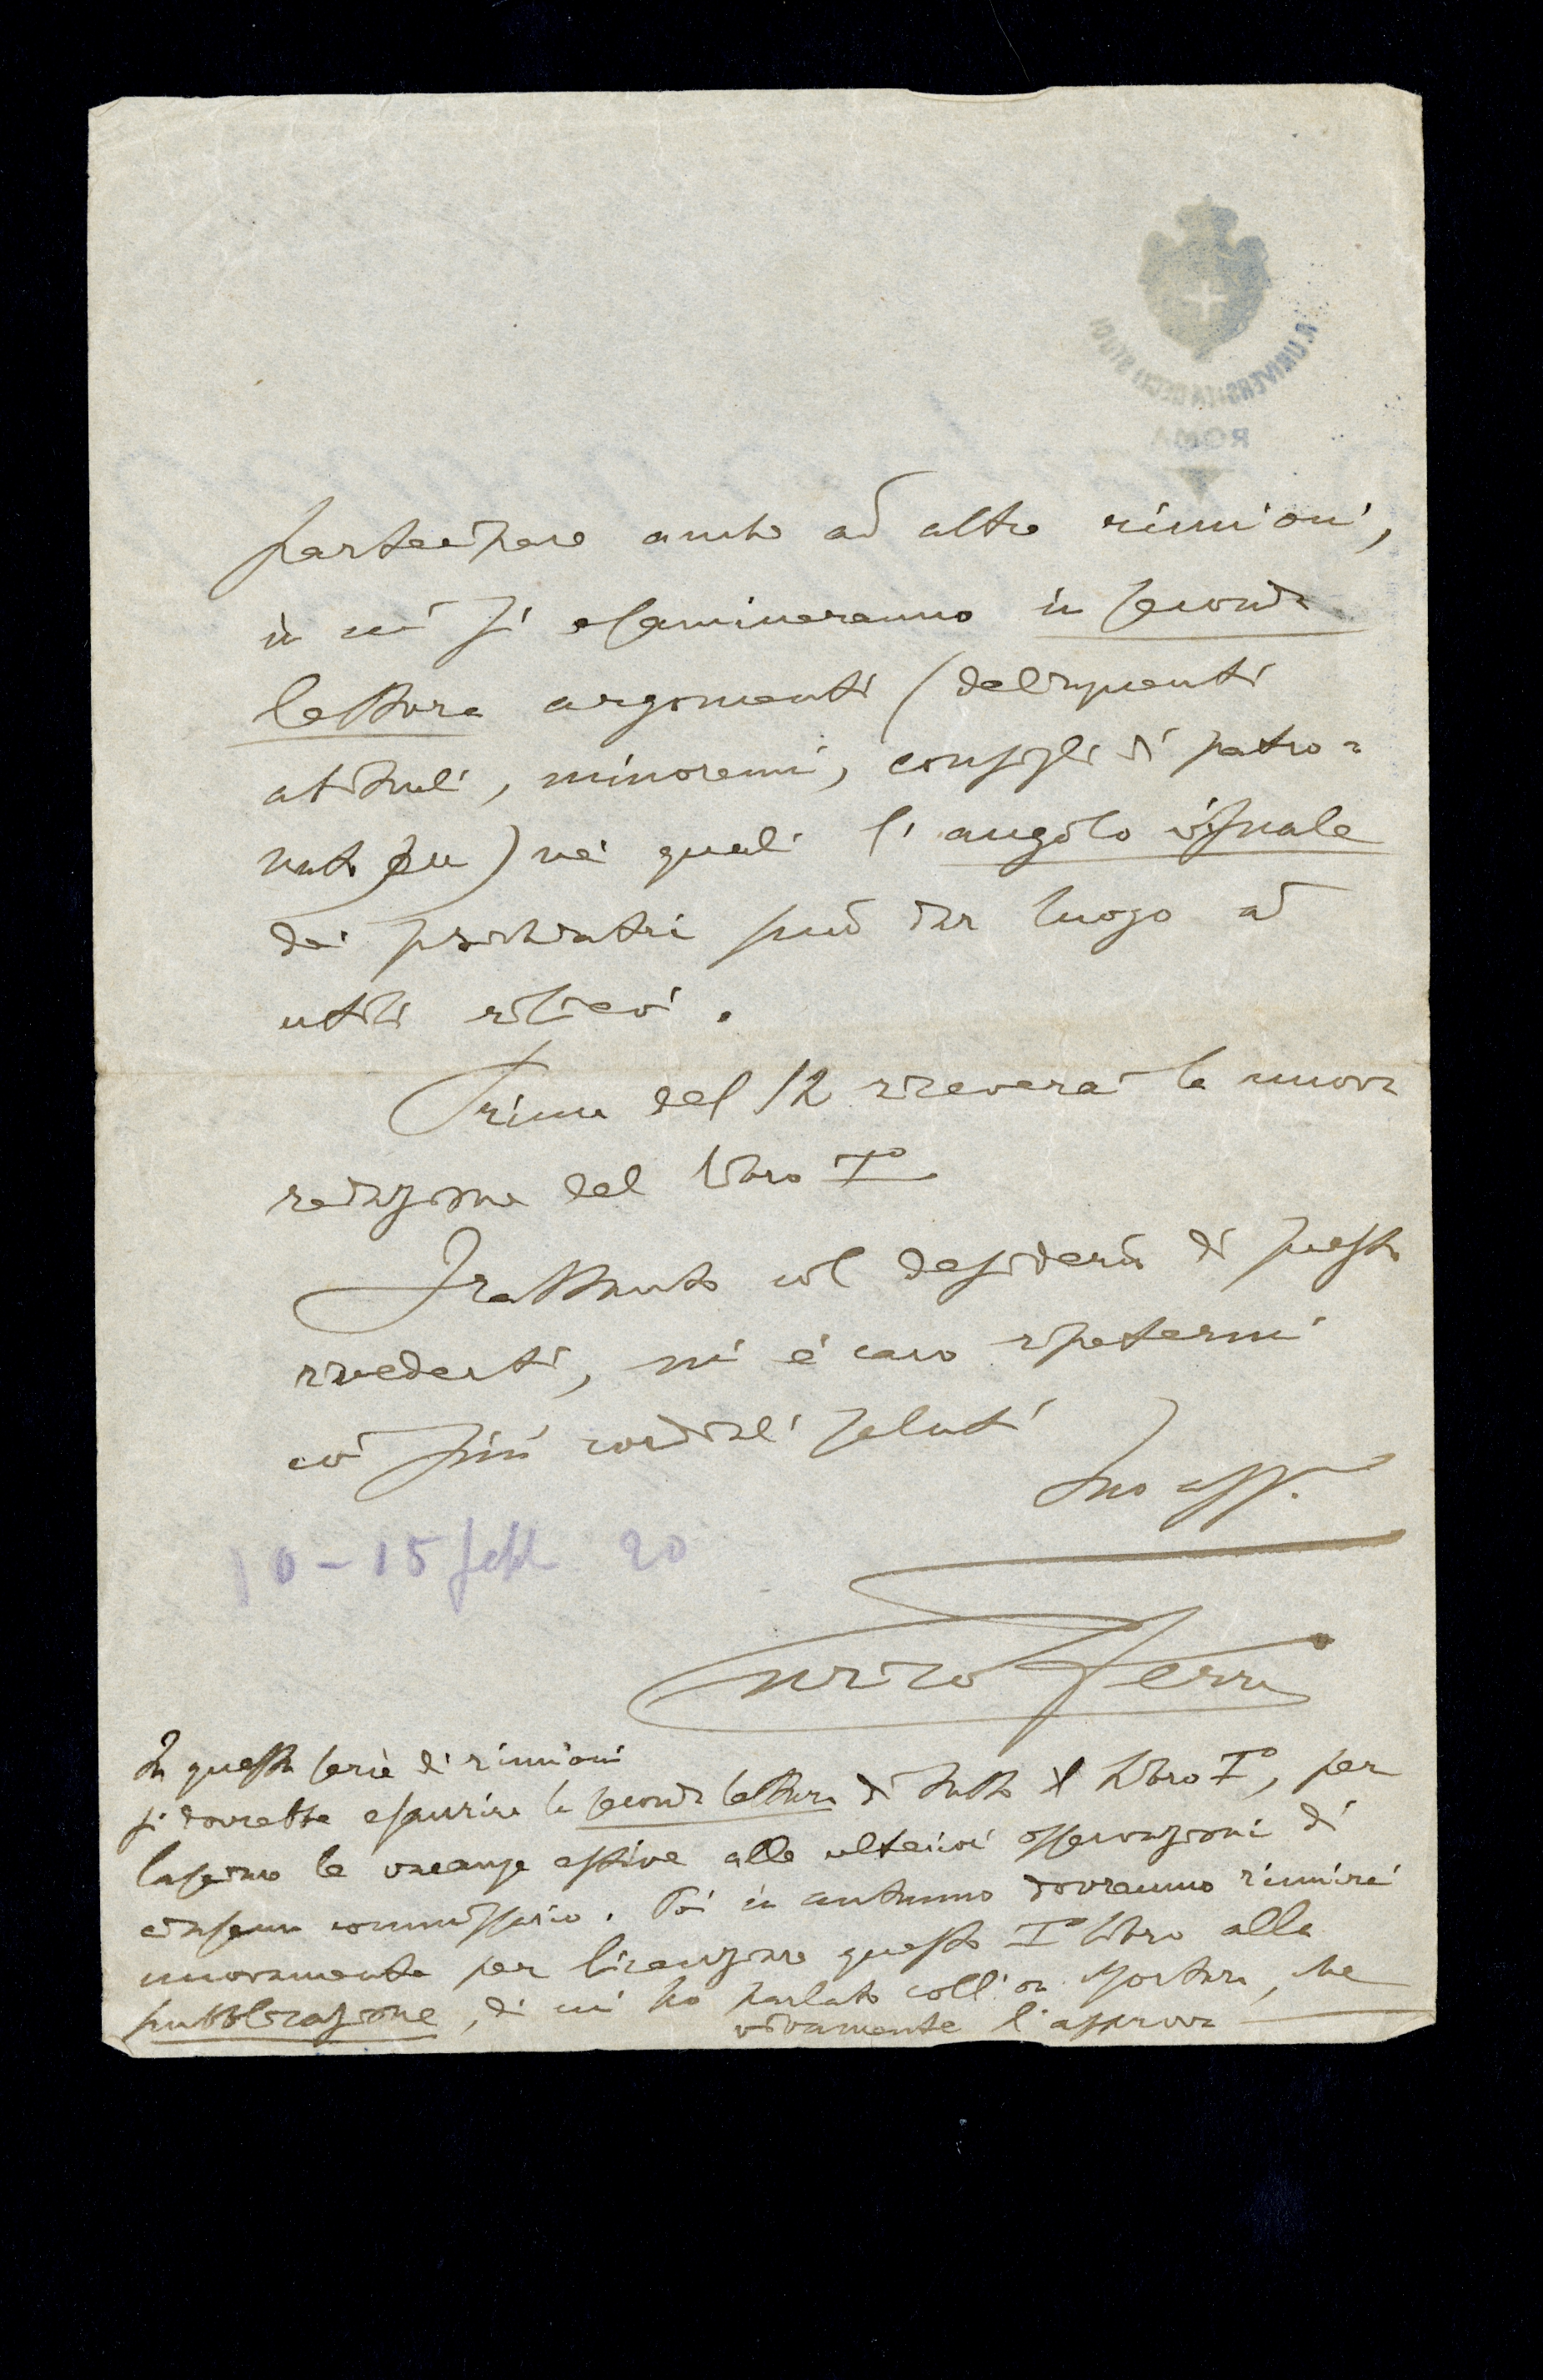 R. UNIVERSITÀ DEGLI STUDI
ROMA
partecipare anche ad altre riunioni,
in cui si esamineranno in seconda
lettura argomenti (delinquenti
abituali, minorenni, consigli di patro=
nato) nei quali l'angolo visuale
dei psichiatri può dar luogo ad
utili rilievi.
Prima del 12 riceverai la nuova
redazione del libro I°
Frattanto col desiderio di presto
rivederti, mi è caro ripetermi
coi più cordiali saluti
Tuo aff.
10-15 20
Enrico Ferri
In questa serie di riunioni
si dovrebbe esaurire la seconda lettura di tutto il libro I°, per
lasciare le vacanze estive alle ulteriori osservazioni di
ciascun commissario. Poi in autunno dovremmo riunirci
nuovamente per licenziare questo I° libro alla
pubblicazione, di cui ho parlato coll'on. Mortara, che
vivamente l'approva